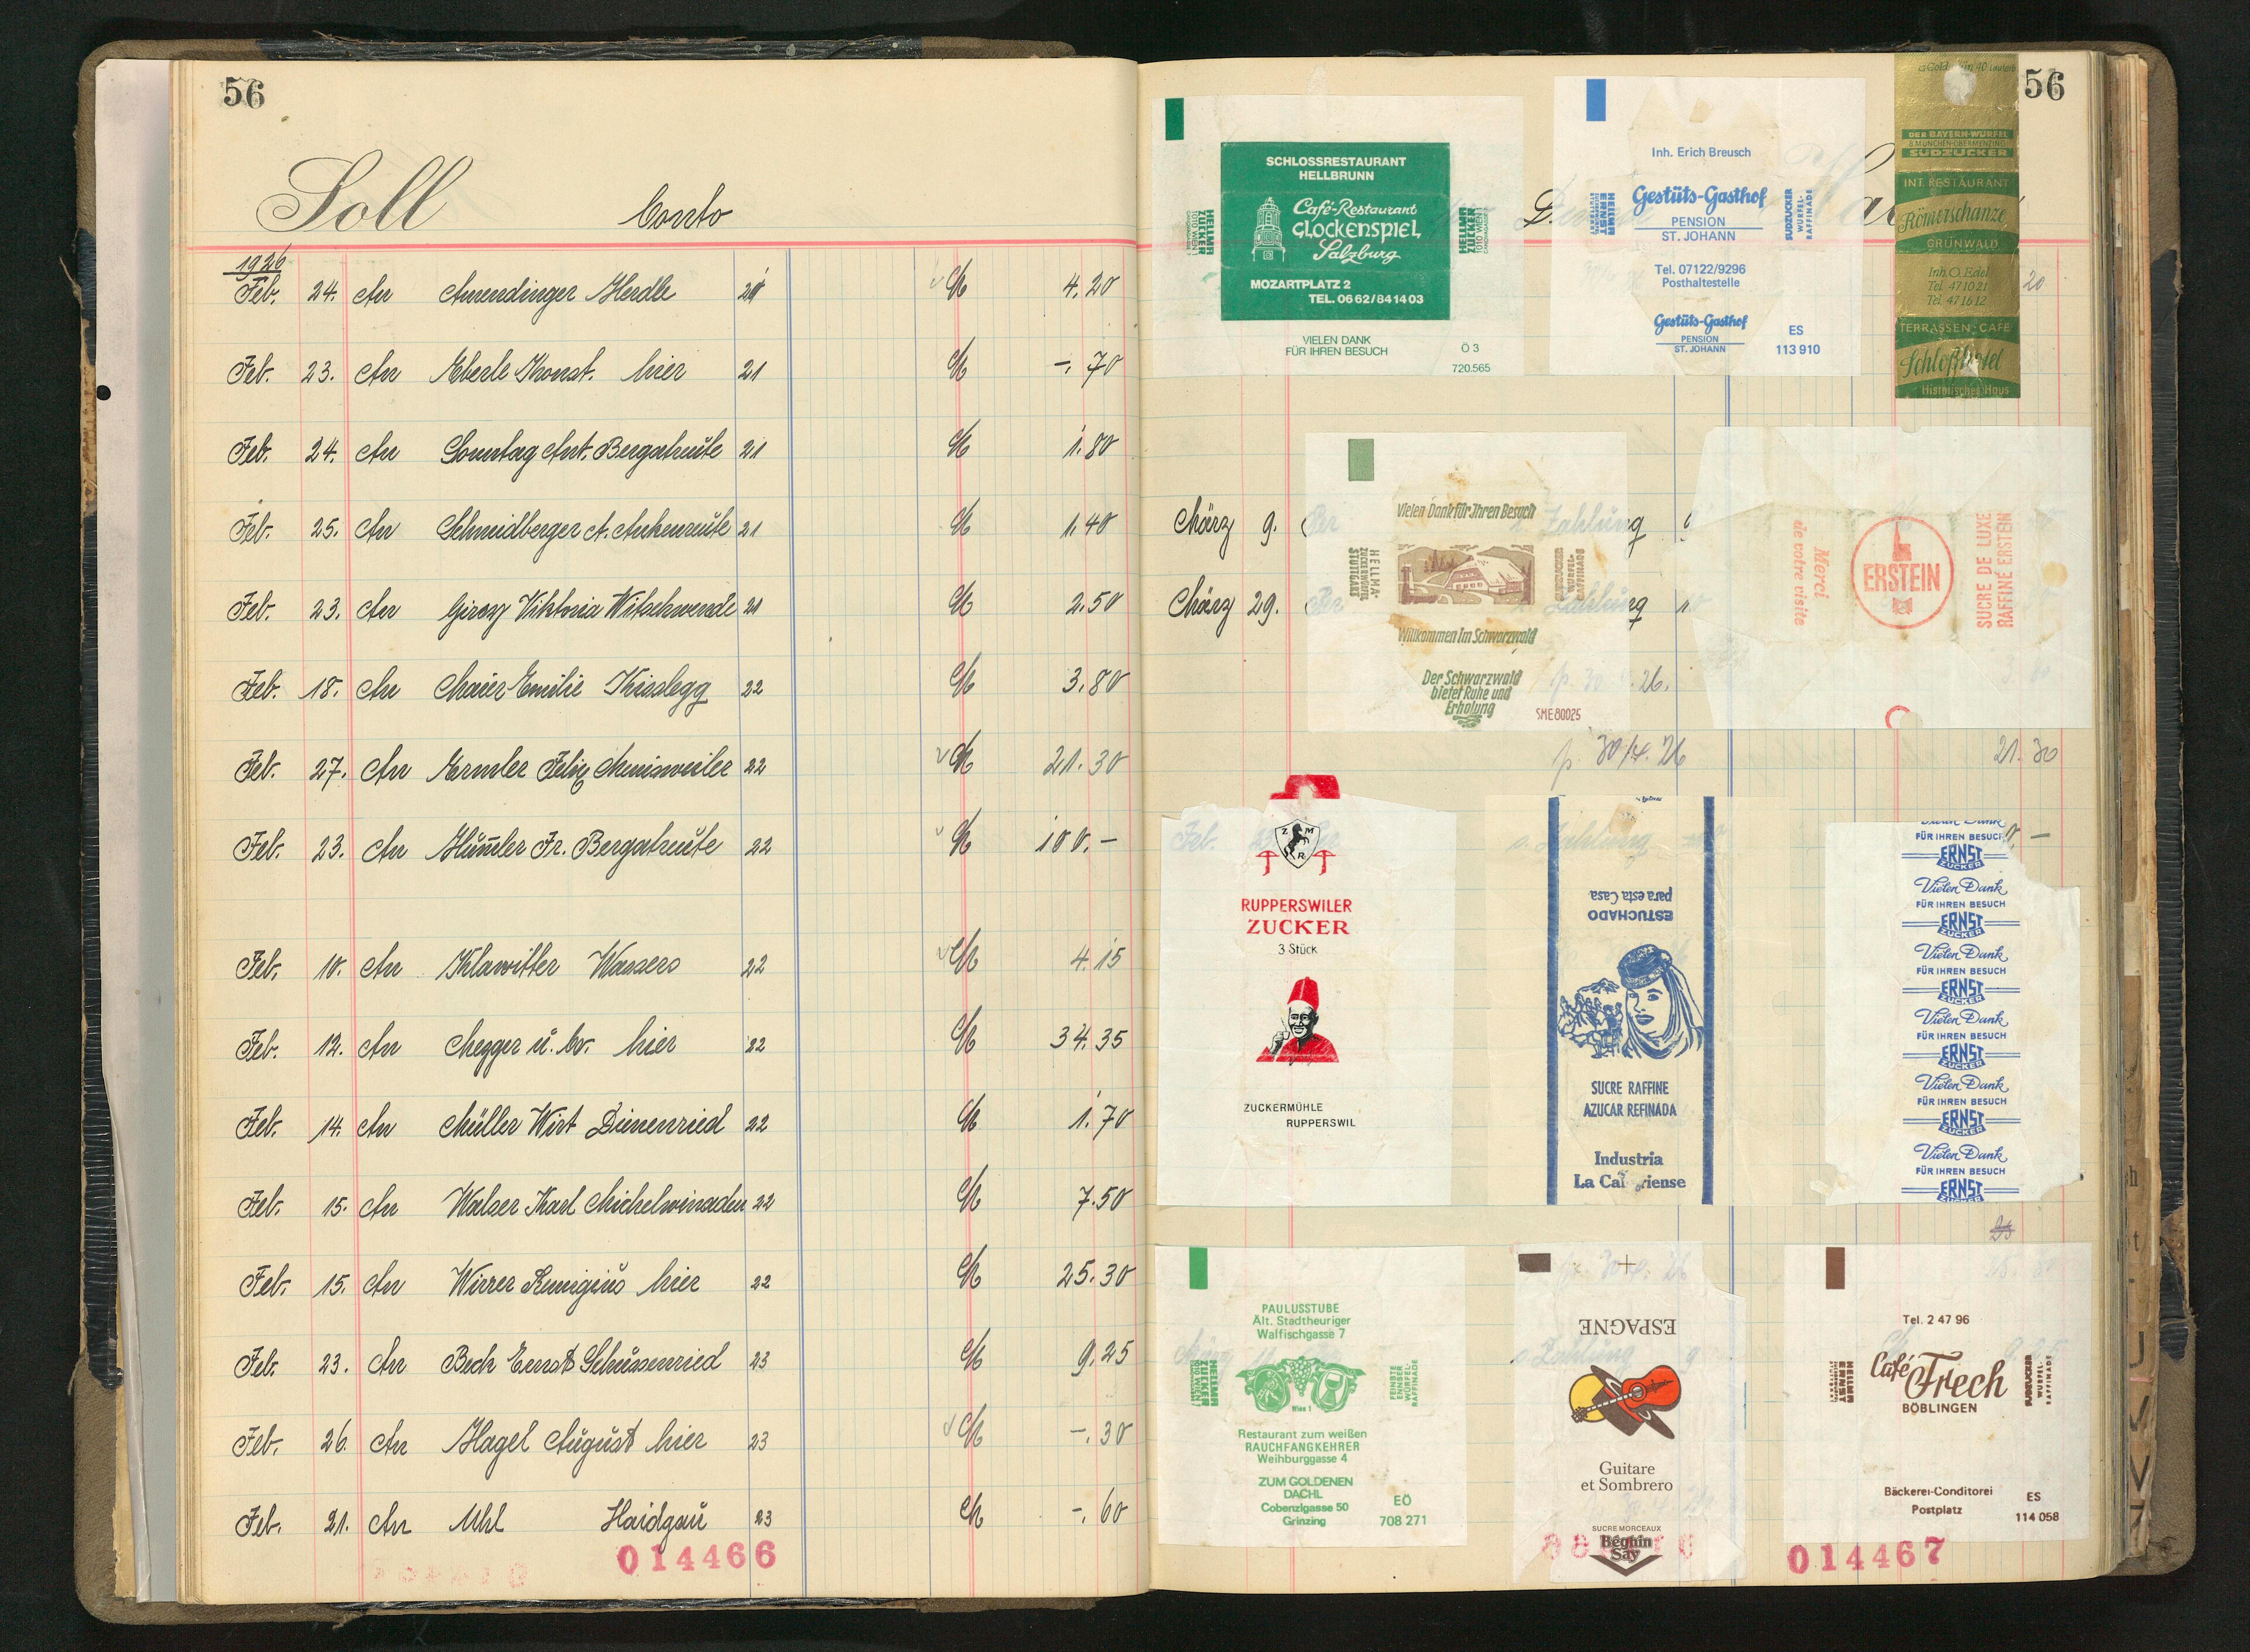 56
Soll
Conto
1926
Feb. 24. An Amendinger Herdle 21 M 4.20
Feb. 23. An Eberle Konst. hier 21 M -.70
Feb. 24. An Sonntag Ant. Bergatreute 21 M 1.80
Feb. 25. An Schmidberger A. Ankenreute 21 M 1.40
Feb. 23. An Viktoria Witschwende 21 M 2.50
Feb. 18. An Maier Emilie Kisslegg 22 M 3.80
Feb. 27. An Ermler Felix Menisweiler 22 M 21.30
Feb. 23. An Hümler Fr. Bergatreute 22 M 100.-
Feb. 10. An Klawitter Wassers 22 M 4.15
Feb. 12. An Mezger u. Co. hier 22 M 34.35
Feb. 14. An Müller Wirt Dinnenried 22 M 1.70
Feb. 15. An Walser Karl Michelwinaden 22 M 7.50
Feb. 15. An Wirrer Remigius hier 22 M 25.30
Feb. 23. An Bech Ernst Schussenried 23 M 9.25
Feb. 26. An Hagel August hier 23 M -.30
Feb. 21. An Uhl Haidgau 23 M -.60
014466
56
SCHLOSSRESTAURANT
HELLBRUNN
Café-Restaurant
GLOCKENSPIEL
Salzburg
MOZARTPLATZ 2
TEL. 06 62/84 14 03
HELLMA
ZUCKER
1010 WIEN 1
VIELEN DANK
FÜR IHREN BESUCH
Ö 3
720.565
Inh. Erich Breusch
Gestüts-Gasthof
PENSION
ST. JOHANN
HELLMA
ERNST
SÜDZUCKER
WÜRFEL-
RAFFINADE
Tel. 07122/9296
Posthaltestelle
Gestüts-Gasthof
PENSION
ST. JOHANN
ES
113 910
DER BAYERN-WÜRFEL
8 MÜNCHEN-OBERMENZING
SÜDZUCKER
INT. RESTAURANT
Römerschanze
GRÜNWALD
Inh. O. Edel
Tel. 47 10 21
Tel. 47 16 12
TERRASSEN-CAFE
Schloßhotel
Historisches Haus
20
März 9. Per Zahlung
März 29. Per Zahlung
Vielen Dank für Ihren Besuch
HELLMA-
ZUCKERWÜRFEL
STUTTGART
SÜDZUCKER
WÜRFEL-
RAFFINADE
Willkommen im Schwarzwald
Der Schwarzwald
bietet Ruhe und
Erholung
SME 80025
Merci
de votre visite
ERSTEIN
SUCRE DE LUXE
RAFFINÉ ERSTEIN
p. 30/4. 26
21.30
Feb.
Zahlung
ZMR
RUPPERSWILER
ZUCKER
3 Stück
ZUCKERMÜHLE
RUPPERSWIL
ESTUCHADO
para esta Casa
SUCRE RAFFINE
AZUCAR REFINADA
Industria
Vielen Dank
FÜR IHREN BESUCH
ERNST
ZUCKER
Vielen Dank
FÜR IHREN BESUCH
ERNST
ZUCKER
Vielen Dank
FÜR IHREN BESUCH
ERNST
ZUCKER
Vielen Dank
FÜR IHREN BESUCH
ERNST
ZUCKER
Vielen Dank
FÜR IHREN BESUCH
ERNST
ZUCKER
Vielen Dank
FÜR IHREN BESUCH
ERNST
ZUCKER
PAULUSSTUBE
Ält. Stadtheuriger
Walfischgasse 7
HELLMA
ZUCKER
1010 WIEN 1
Wien 1
FEINSTE
ENNSER
WÜRFEL-
RAFFINADE
Restaurant zum weißen
RAUCHFANGKEHRER
Weihburggasse 4
ZUM GOLDENEN
DACHL
Cobenzlgasse 50
Grinzing
EÖ
708 271
ESPAGNE
Guitare
et Sombrero
SUCRE MORCEAUX
Béghin
Say
Tel. 2 47 96
Café Frech
BÖBLINGEN
HELLMA
ERNST
SÜDZUCKER
WÜRFEL-
RAFFINADE
Bäckerei-Conditorei
Postplatz
ES
114 058
014467